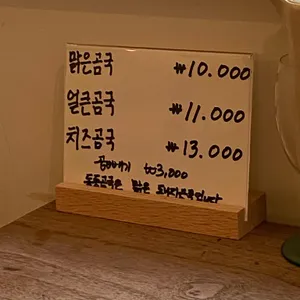 맑은곰국 ₩10.000
얼큰곰국 ₩11.000
치즈곰국 ₩13.000
₩3,000
맑은